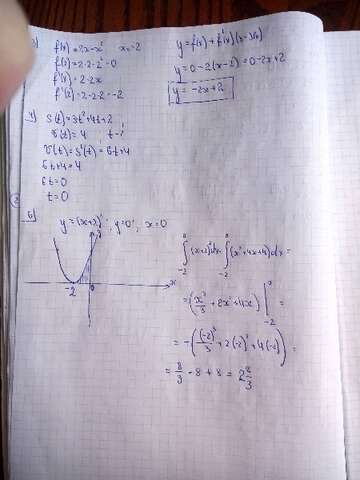 f(x) = 2x - x² x₀ = 2
f(2) = 2·2 - 2² = 0
f'(x) = 2 - 2x
f'(2) = 2 - 2·2 = -2
y = 0 - 2(x - 2) = 0 - 2x + 2
y = -2x + 2
4) s(t) = 3t² + 4t + 2
v(t) = 4, t - ?
v(t) = s'(t) = 6t + 4
6t + 4 = 4
6t = 0
t = 0
y = (x+2)², y = 0, x = 0
-2 0 x
∫₋₂⁰ (x+2)² dx = ∫₋₂⁰ (x² + 4x + 4) dx =
= (x³/3 + 2x² + 4x) |₋₂⁰ =
= -((-2)³/3 + 2(-2)² + 4(-2)) =
= 8/3 - 8 + 8 = 2 2/3